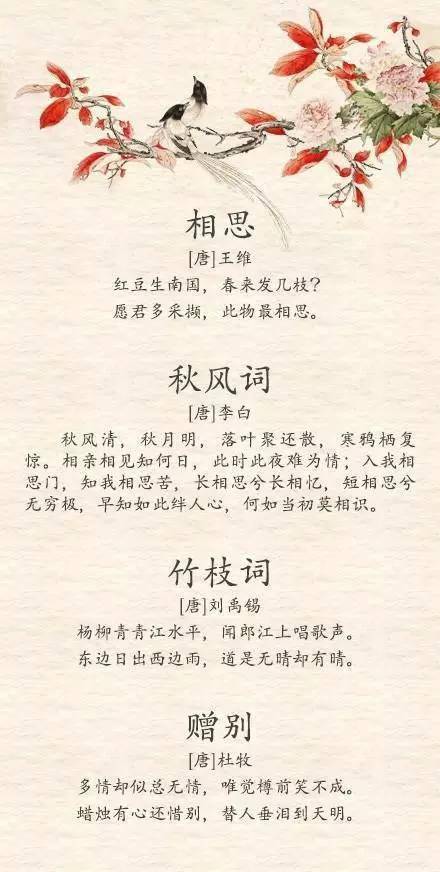 相思
[唐]王维
红豆生南国，春来发几枝？
愿君多采撷，此物最相思。
秋风词
[唐]李白
秋风清，秋月明，落叶聚还散，寒鸦栖复
惊。相亲相见知何日，此时此夜难为情；入我相
思门，知我相思苦，长相思兮长相忆，短相思兮
无穷极，早知如此绊人心，何如当初莫相识。
竹枝词
[唐]刘禹锡
杨柳青青江水平，闻郎江上唱歌声。
东边日出西边雨，道是无晴却有晴。
赠别
[唐]杜牧
多情却似总无情，唯觉樽前笑不成。
蜡烛有心还惜别，替人垂泪到天明。